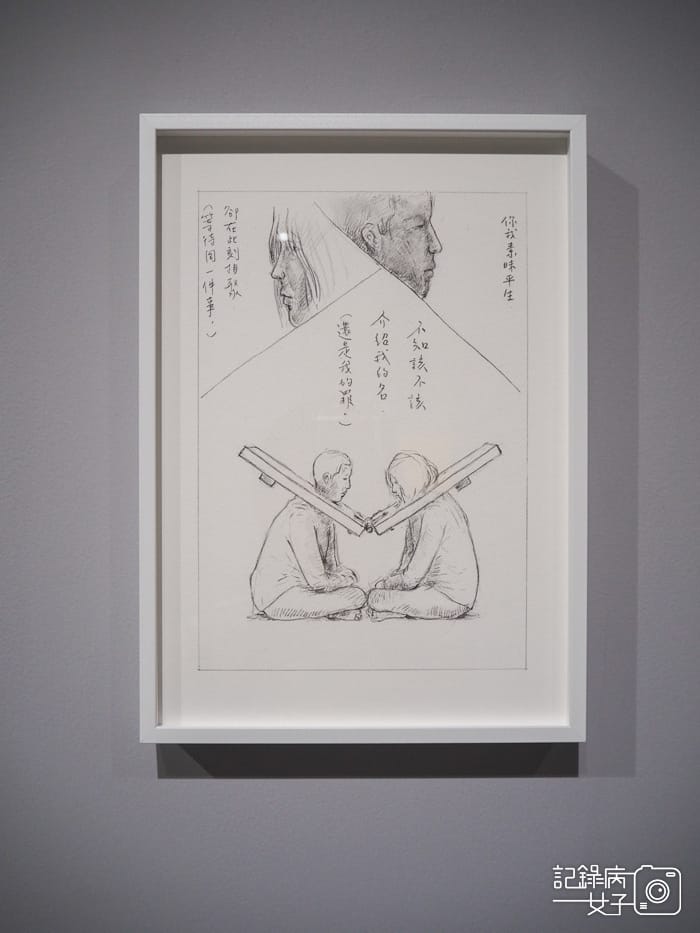 你我素昧平生
卻在此刻相聚
(等待同一件事。)
不知該不該
介紹我的名.
(還是我的罪。)
記錄病
女子